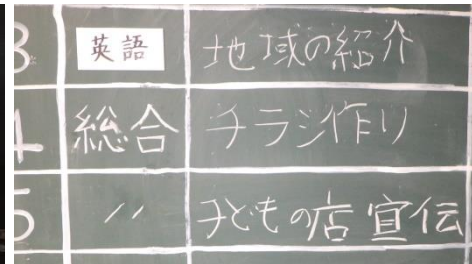 3 英語 地域の紹介
4 総合 チラシ作り
5 〃 子どもの店宣伝